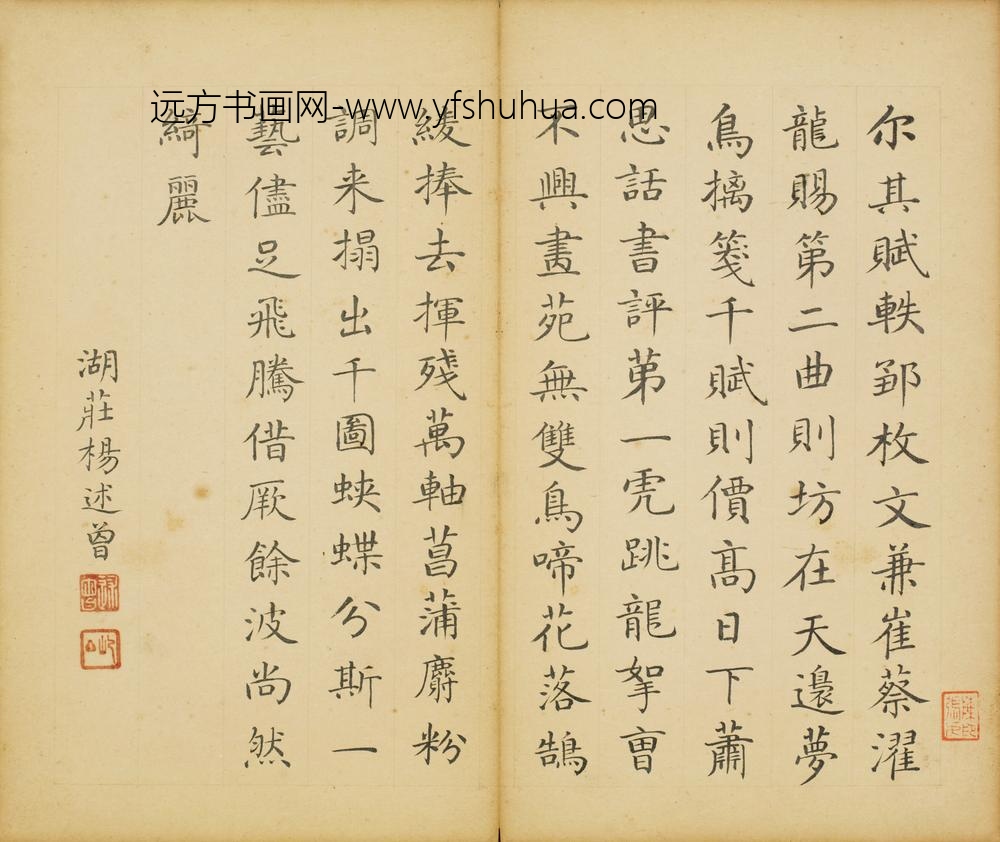 远方书画网-www.yfshuhua.com
尔其賦軼鄒枚文兼崔蔡濯
龍賜第二曲則坊在天邊夢
鳥摛箋千賦則價高日下蕭
思話書評苐一虎跳龍拏曺
不興畫苑無雙鳥啼花落鵠
緩捧去揮殘萬軸菖蒲麝粉
調来搨出千圖蛺蝶分斯一
藝儘足飛騰借厥餘波尚然
綺麗
湖莊楊述曾